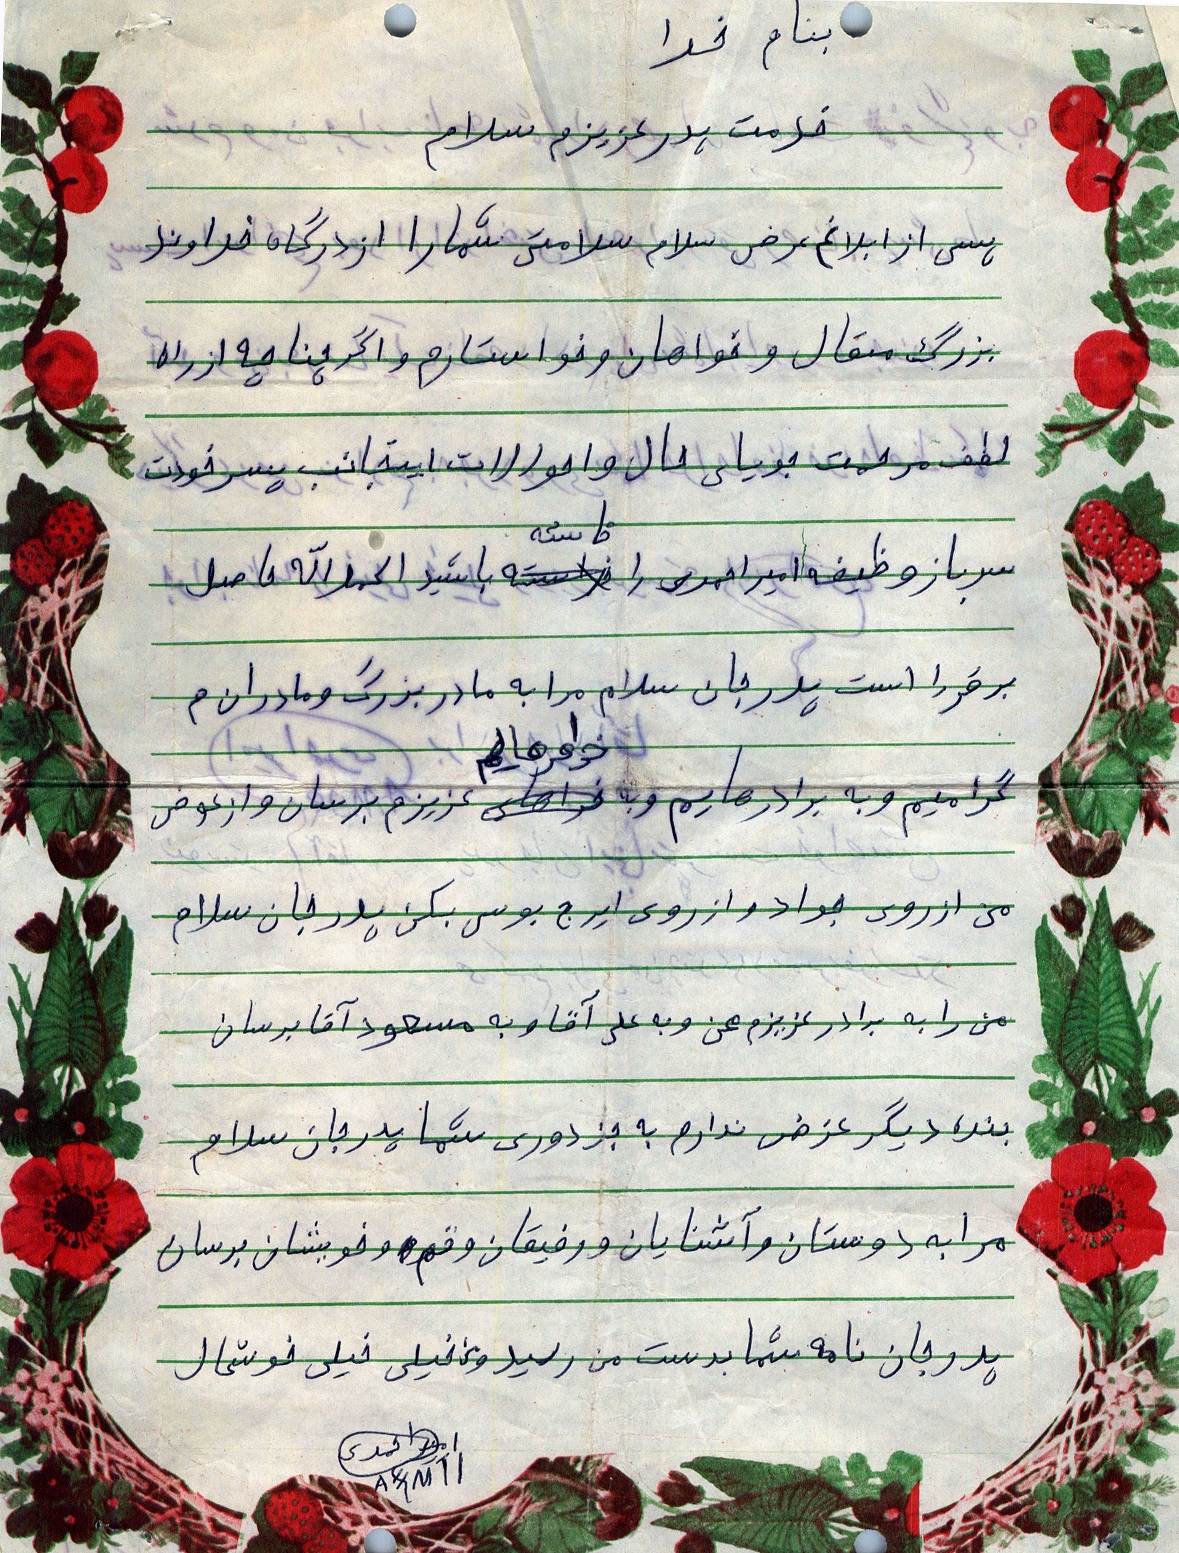 بنام خدا
خدمت پدر عزیزم سلام
پس از ابلاغ عرض سلام سلامتی شما را از درگاه خداوند
بزرگ متقال و خواهان و خواستارم و اگر چناچه از راه
لطف مرحمت جویای حال و احوالات اینجانب پسر خودت
سرباز وظیفه امیر احمدی را خاسته باشید الحمدالله حاصل
برقرا است پدر جان سلام مرا به مادر بزرگ و مادران م
خواهرهایم
گرامیم و به برادرهایم و به عزیزم برسان و از عوض
من از روی جواد و از روی ایرج بوس بکن پدر جان سلام
من را به برادر عزیزم و به علی آقا و به مسعود آقا برسان
بنده دیگر عرض ندارم به جز دوری شما پدر جان سلام
مرا به دوستان و آشنایان و رفیقان و قوم و خویشان برسان
پدر جان نامه شما بدست من رسید و خیلی خیلی خوشحال
امیر احمدی